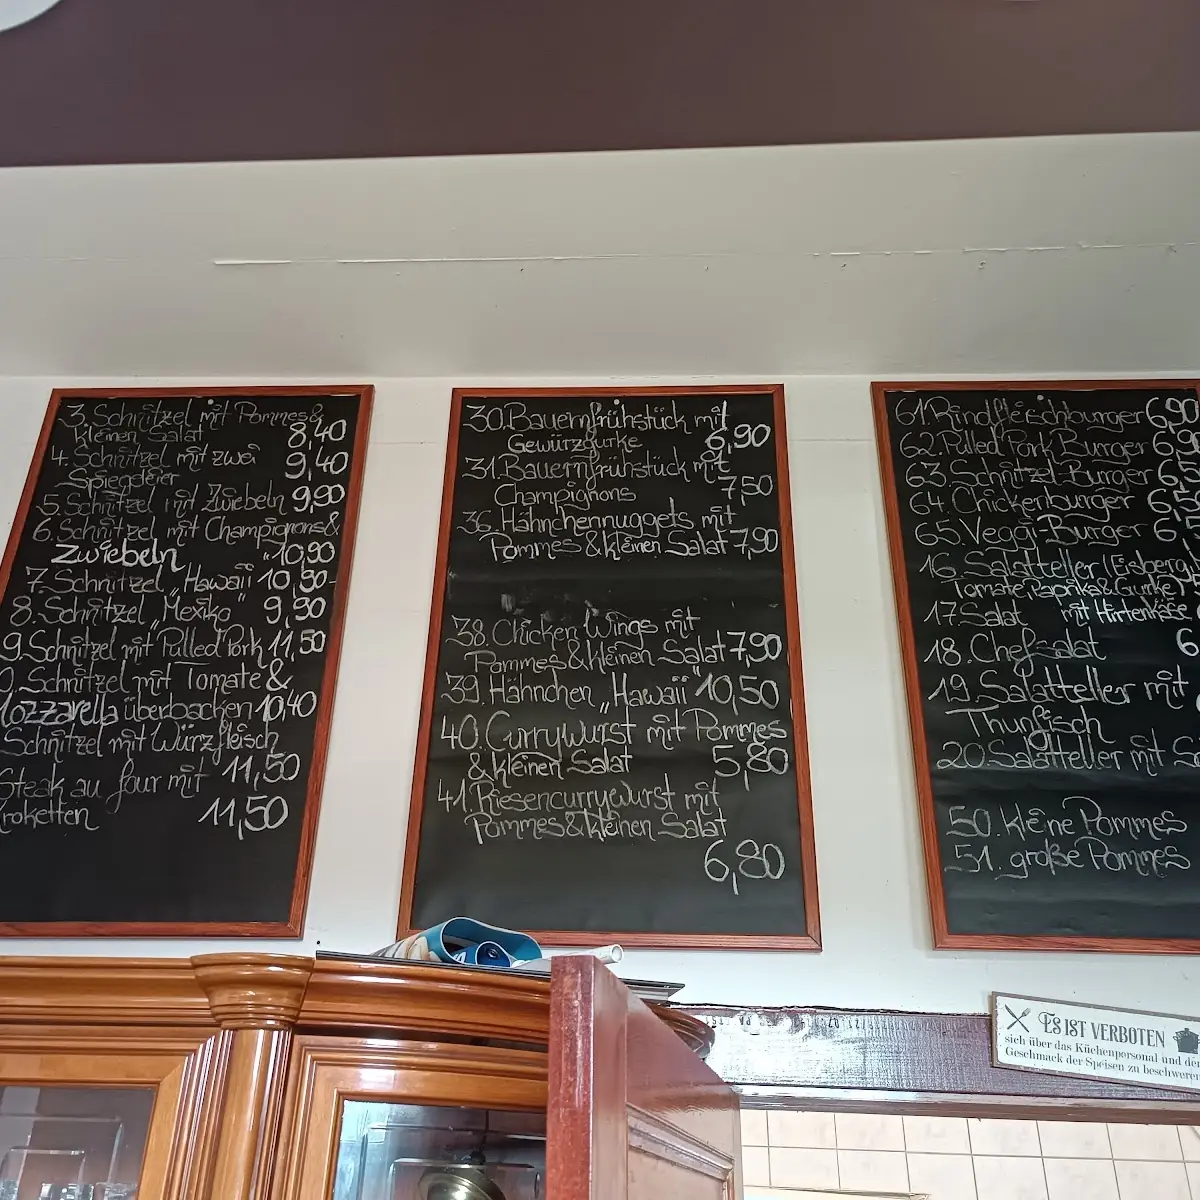 3. Schnitzel mit Pommes &
kleinen Salat 8,40
4. Schnitzel mit zwei
Spiegeleier 9,40
5. Schnitzel mit Zwiebeln 9,90
6. Schnitzel mit Champignons &
Zwiebeln 10,90
7. Schnitzel „Hawaii" 10,90
8. Schnitzel „Mexiko" 9,90
9. Schnitzel mit Pulled Pork 11,50
0. Schnitzel mit Tomate &
Mozzarella überbacken 10,40
Schnitzel mit Würzfleisch
11,50
Steak au four mit
Kroketten 11,50
30. Bauernfrühstück mit
Gewürzgurke 6,90
31. Bauernfrühstück mit
Champignons 7,50
36. Hähnchennuggets mit
Pommes & kleinen Salat 7,90
38. Chicken Wings mit
Pommes & kleinen Salat 7,90
39. Hähnchen „Hawaii" 10,50
40. Currywurst mit Pommes
& kleinen Salat 5,80
41. Riesencurrywurst mit
Pommes & kleinen Salat
6,80
61. Rindfleischburger 6,90
62. Pulled Pork Burger 6,9
63. Schnitzel Burger 6,5
64. Chickenburger 6,5
65. Veggi Burger 6,
16. Salatteller (Eisberg,
Tomate, Paprika & Gurke)
17. Salat mit Hirtenkäse
18. Chefsalat 6
19. Salatteller mit
Thunfisch
20. Salatteller mit
50. kleine Pommes
51. große Pommes
ES IST VERBOTEN
sich über das Küchenpersonal und den
Geschmack der Speisen zu beschweren